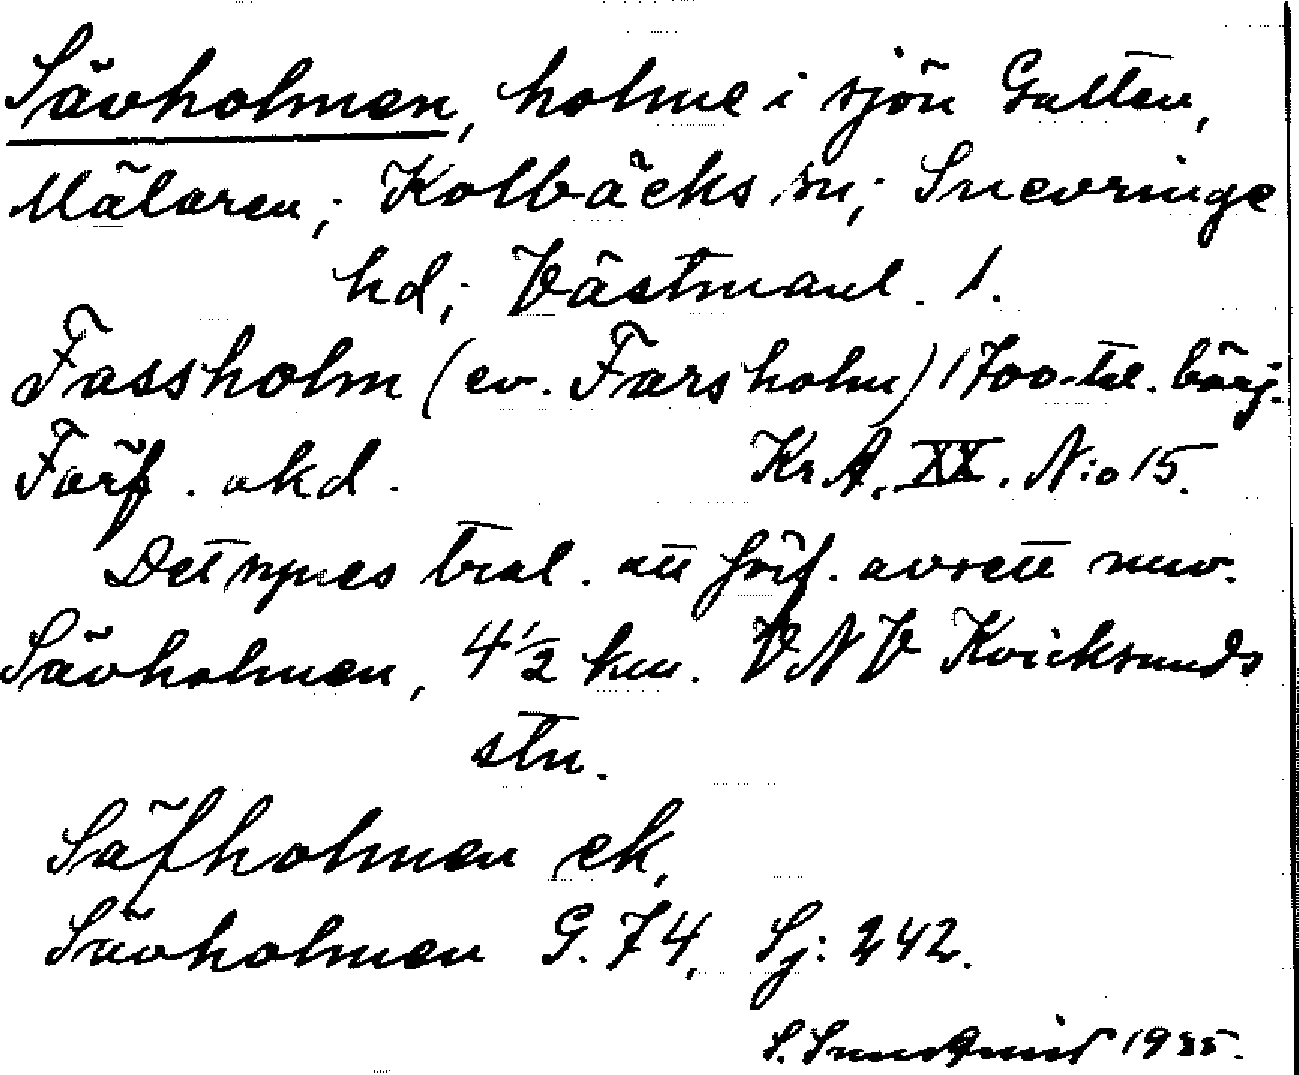 Sävholmen, holme i sjön Galten,
Mälaren; Kolbäcks sn; Snevringe
hd; Västmanl. l.
Fassholm (ev. Farsholm) 1700-tal. börj.
Förf. okd. Kr.A. XX. N:o 15.
Det synes tral. att förf. avsett nuv.
Sävholmen, 4 1/2 km. VNV Kvicksunds
stn.
Säfholmen ek,
Sävholmen G. 74, Sj: 242.
1935.